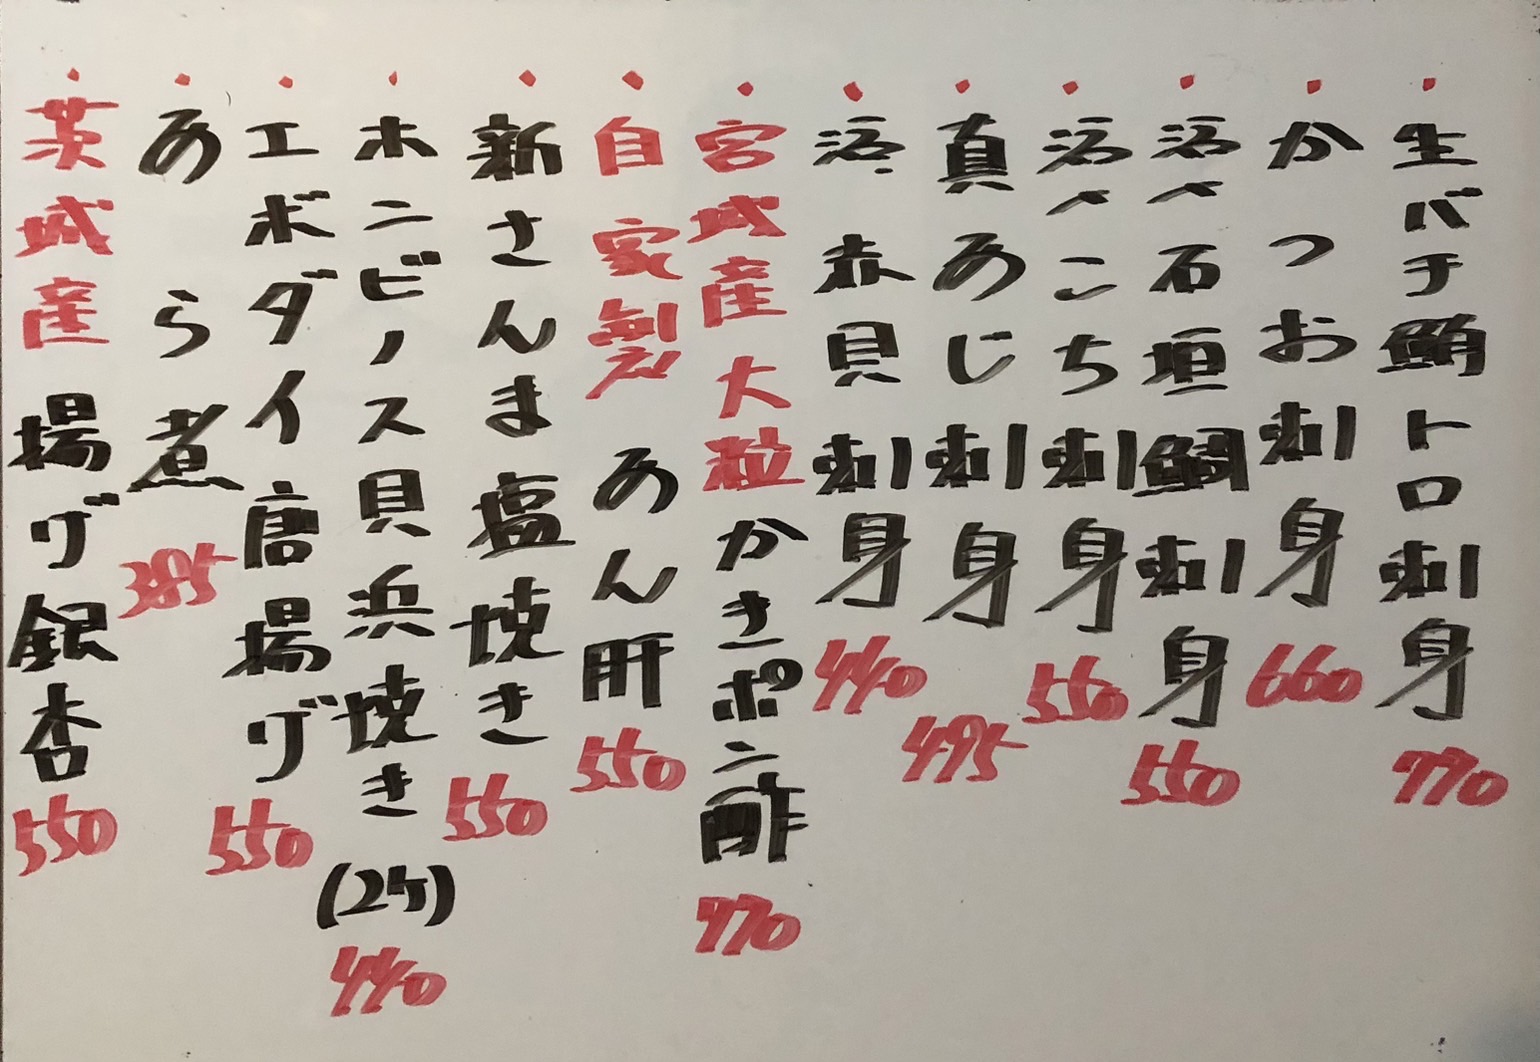 生バチ鮪トロ刺身 770
かつお刺身 660
活〆石垣鯛刺身 550
活〆こち刺身 550
真あじ刺身 495
活赤貝刺身 440
宮城産大粒かきポン酢 770
自家製あん肝 550
新さんま塩焼き 550
ホンビノス貝浜焼き(2ケ) 440
エボダイ唐揚げ 550
あら煮 385
茨城産揚げ銀杏 550